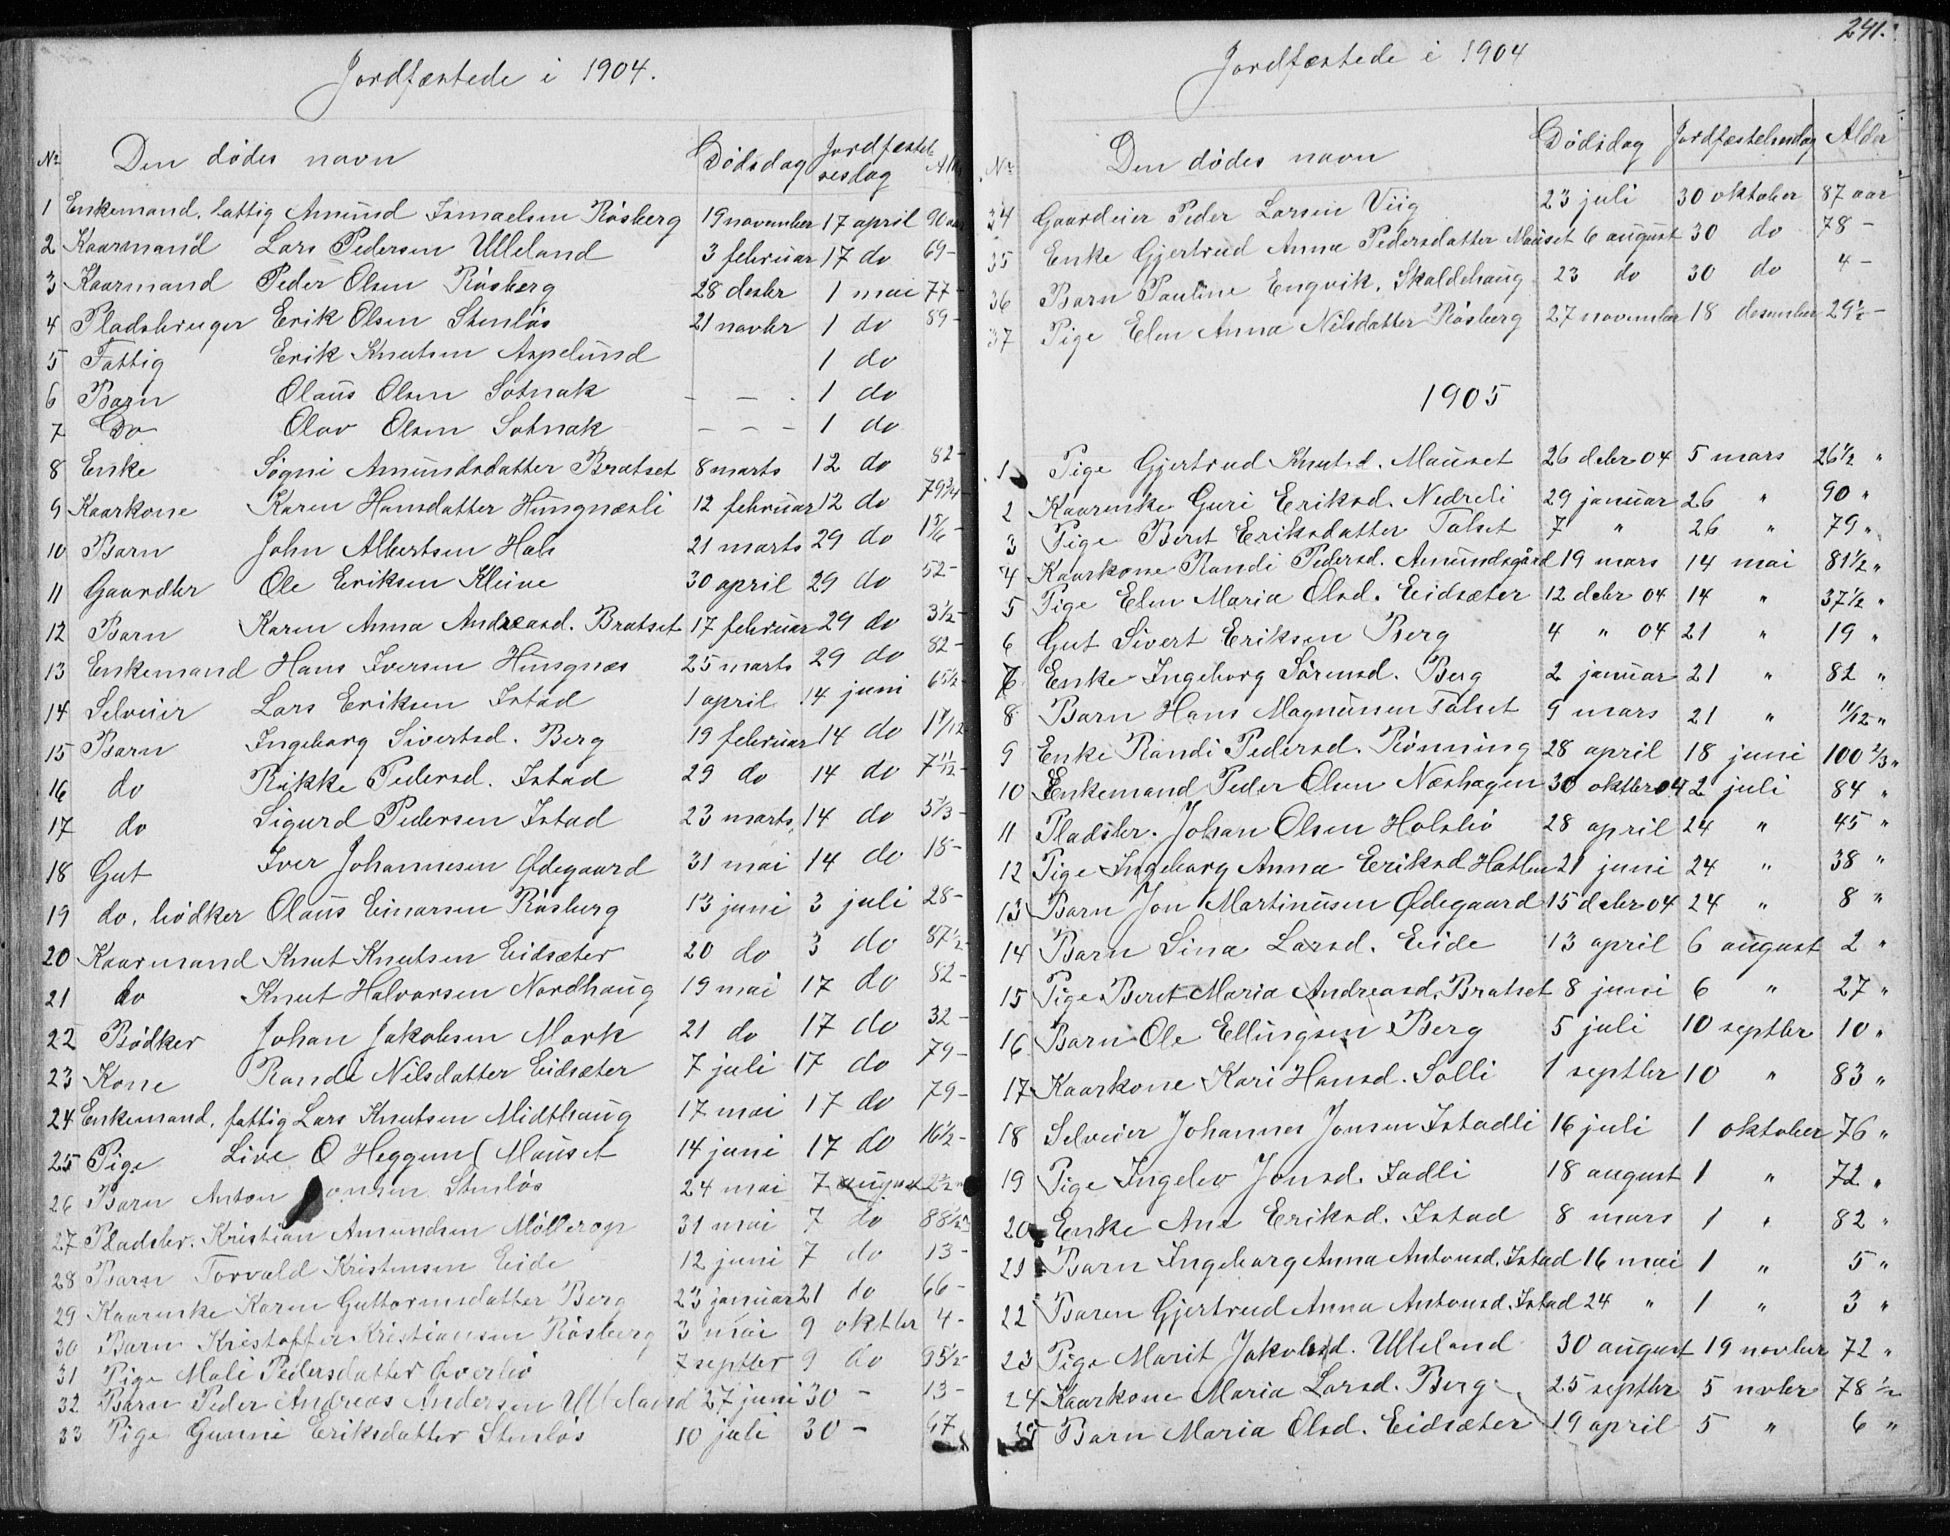 Jordfæstede i 1904.
No Den dødes navn Dødsdag Jordfæstelsesdag
1 Enkemand, fattig Amund Ismaelsen Røsberg 19 november 17 april 90 aar
2 Kaarmand Lars Pedersen Ulleland 3 februar 17 do 69 -
3 Kaarmand Peder Olsen Røsberg 28 desbr 1 mai 77 -
4 Pladsbruger Erik Olsen Stenløs 21 novbr 1 do 89 -
5 Fattig Erik Knutsen Aspelund 1 do
6 Barn Olaus Olsen Sotnak - - - 1 do
7 Do Olav Olsen Sotnak - - - 1 do
8 Enke Søgni Amundsdatter Bratset 8 marts 12 do 82 -
9 Kaarkone Karen Hansdatter Hungnæsli 12 februar 12 do 79 3/4 -
10 Barn John Albertsen Hals 21 marts 29 do 1 5/6 -
11 Gaardbr Ole Eriksen Kleive 30 april 29 do 52 -
12 Barn Karen Anna Andreasd. Bratset 17 februar 29 do 3 1/2 -
13 Enkemand Hans Iversen Hungnæs 25 marts 29 do 82 -
14 Selveier Lars Eriksen Istad 1 april 14 juni 65 1/2 -
15 Barn Ingeborg Sivertsd. Berg 19 februar 14 do
16 do Rikke Pedersd. Istad 29 do 14 do 7 11/12 -
17 do Sigurd Pedersen Istad 23 marts 14 do 5 1/3 -
18 Gut Iver Johannesen Ødegaard 31 mai 14 do 18 -
19 do, bødker Olaus Einarsen Røsberg 13 juni 3 juli 28 -
20 Kaarmand Knut Knutsen Eidsæter 20 do 3 do 87 1/2 -
21 do Knut Halvorsen Nordhaug 19 mai 17 do 82 -
22 Bødker Johan Jakobsen Mork 21 do 17 do 32 -
23 Kone Randi Nilsdatter Eidsæter 7 juli 17 do 79 -
24 Enkemand, fattig Lars Knutsen Midthaug 17 mai 17 do 79 -
25 Pige Live O Heggem (Mauset 14 juni 17 do 16 1/2 -
26 Barn Anton Jonsen Stenløs 24 mai 7 august 2 1/2 -
27 Pladsbr. Kristian Amundsen Mållerop 31 mai 7 do 88 1/2 -
28 Barn Torvald Kristensen Eide 12 juni 7 do 13 -
29 Kaarenke Karen Guttormsdatter Berg 23 januar 21 do 66 -
30 Barn Kristoffer Kristiansen Røsberg 3 mai 9 oktbr 4 -
31 Pige Mali Pedersdatter Øverbø 7 septbr 9 do 95 1/2 -
32 Barn Peder Andreas Andersen Ulleland 27 juni 30 - 13 -
33 Pige Gunni Eriksdatter Stenløs 10 juli 30 - 67
241.
Jordfæstede i 1904
No Den dødes navn Dødsdag Jordfæstelsesdag Alder
34 Gaardeier Peder Larsen Viig 23 juli 30 oktober 87 aar
35 Enke Gjertrud Anna Pedersdatter Mauset 6 august 30 do 78 -
36 Barn Pauline Engvik, Skaldehaug 23 do 30 do 4 -
37 Pige Elen Anna Nilsdatter Røsberg 27 november 18 desember 29 1/2 -
1905
1 Pige Gjertrud Knutsd. Mauset 26 debr 04 5 mars 26 1/2 "
2 Kaarenke Guri Eriksd. Nedreli 29 januar 26 " 90 "
3 Pige Beret Eriksdatter Talset 7 " 26 " 79 "
4 Kaarkone Randi Pedersd. Amundsgård 19 mars 14 mai 81 1/2 "
5 Pige Elen Maria Olsd. Eidsæter 12 debr 04 14 " 37 1/2 "
6 Gut Sivert Eriksen Berg 4 " 04 21 " 19 "
7 Enke Ingeborg Sørensd. Berg 2 januar 21 " 82 "
8 Barn Hans Magnusen Talset 9 mars 21 " 11/12 "
9 Enke Randi Pedersd. Rønning 28 april 18 juni 100 2/3 "
10 Enkemand Peder Olsen Næshagen 30 oktbr 04 2 juli 84 "
11 Pladsbr. Johan Olsen Holsbø 28 april 24 " 45 "
12 Pige Ingeborg Anna Eriksd Hatlen 21 juni 24 " 38 "
13 Barn Jon Martinusen Ødegaard 15 debr 04 24 " 8 "
14 Barn Sina Larsd. Eide 13 april 6 august 2 "
15 Pige Beret Maria Andreasd. Bratset 8 juni 6 " 27 "
16 Barn Ole Ellingsen Berg 5 juli 10 septbr 10 "
17 Kaarkone Kari Hansd. Solli 1 septbr 10 " 83 "
18 Selveier Johannes Jonsen Istadli 16 juli 1 oktober 76 "
19 Pige Ingelev Jonsd. Iadli 18 august 1 " 72 "
20 Enke Ane Eriksd. Istad 8 mars 1 " 82 "
21 Barn Ingeborg Anna Antonsd. Istad 16 mai 1 " 5 "
22 Baren Gjertrud Anna Antonsd. Istad 24 " 1 " 3 "
23 Pige Marit Jakobsd. Ulleland 30 august 19 novber 72 "
24 Kaarkone Maria Larsd. Berg 25 septbr 5 novbr 78 1/2
25 Barn Maria Olsd. Eidsæter 19 april 5 " 6 "